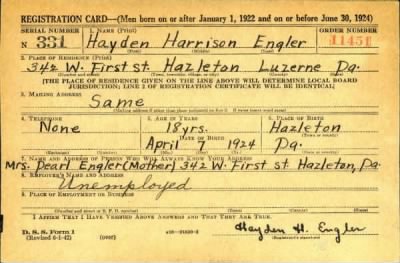 REGISTRATION CARD—(Men born on or after January 1, 1922 and on or before June 30, 1924)
SERIAL NUMBER 1. NAME (Print) ORDER NUMBER
N 331 Hayden Harrison Engler 11451
(First) (Middle) (Last)
2. PLACE OF RESIDENCE (Print)
342 W. First st. Hazleton Luzerne Pa.
(Number and street) (Town, township, village, or city) (County) (State)
[THE PLACE OF RESIDENCE GIVEN ON THE LINE ABOVE WILL DETERMINE LOCAL BOARD
JURISDICTION; LINE 2 OF REGISTRATION CERTIFICATE WILL BE IDENTICAL]
3. MAILING ADDRESS
Same
4. TELEPHONE 5. AGE IN YEARS 6. PLACE OF BIRTH
None 18yrs. Hazleton
DATE OF BIRTH
April 7 1924 Pa.
7. NAME AND ADDRESS OF PERSON WHO WILL ALWAYS KNOW YOUR ADDRESS
Mrs. Pearl Engler (Mother) 342 W. First st. Hazleton, Pa.
8. EMPLOYER'S NAME AND ADDRESS
Unemployed
9. PLACE OF EMPLOYMENT OR BUSINESS
I AFFIRM THAT I HAVE VERIFIED ABOVE ANSWERS AND THAT THEY ARE TRUE.
D. S. S. Form 1
(Revised 6-1-42) (over) Hayden H. Engler
(Registrant's signature)